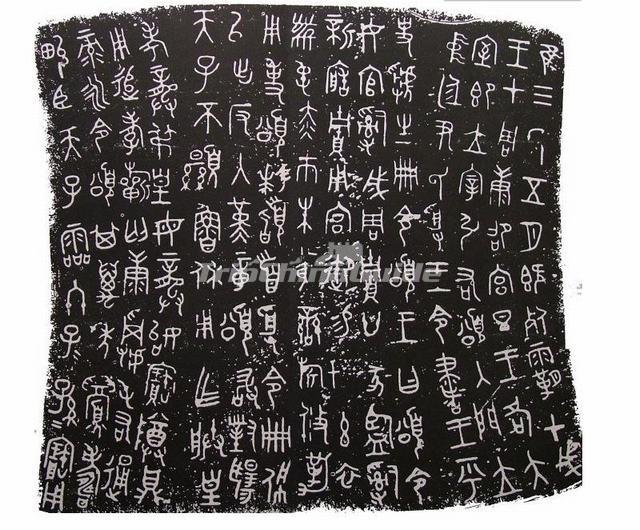 隹三年五月既死霸甲戌
王才周康卲宮旦王各大
室即立宰引右頌入門立
中廷尹氏受王令書王乎
史虢生冊令頌王曰頌令
女官𤔲成周貯廿家監𤔲
新造貯用宮御易女玄衣
黹屯赤巿朱黃鑾旂攸勒
用事頌拜𩒨首受令冊佩
以出反入堇章頌敢對揚
天子不顯魯休用乍朕皇
考龔弔皇母龔始寶尊鼎
用追孝祈匄康𤔲屯右通
彔永令頌其萬年眉壽
畯臣天子霝冬子子孫孫寶用
TravelChinaGuide